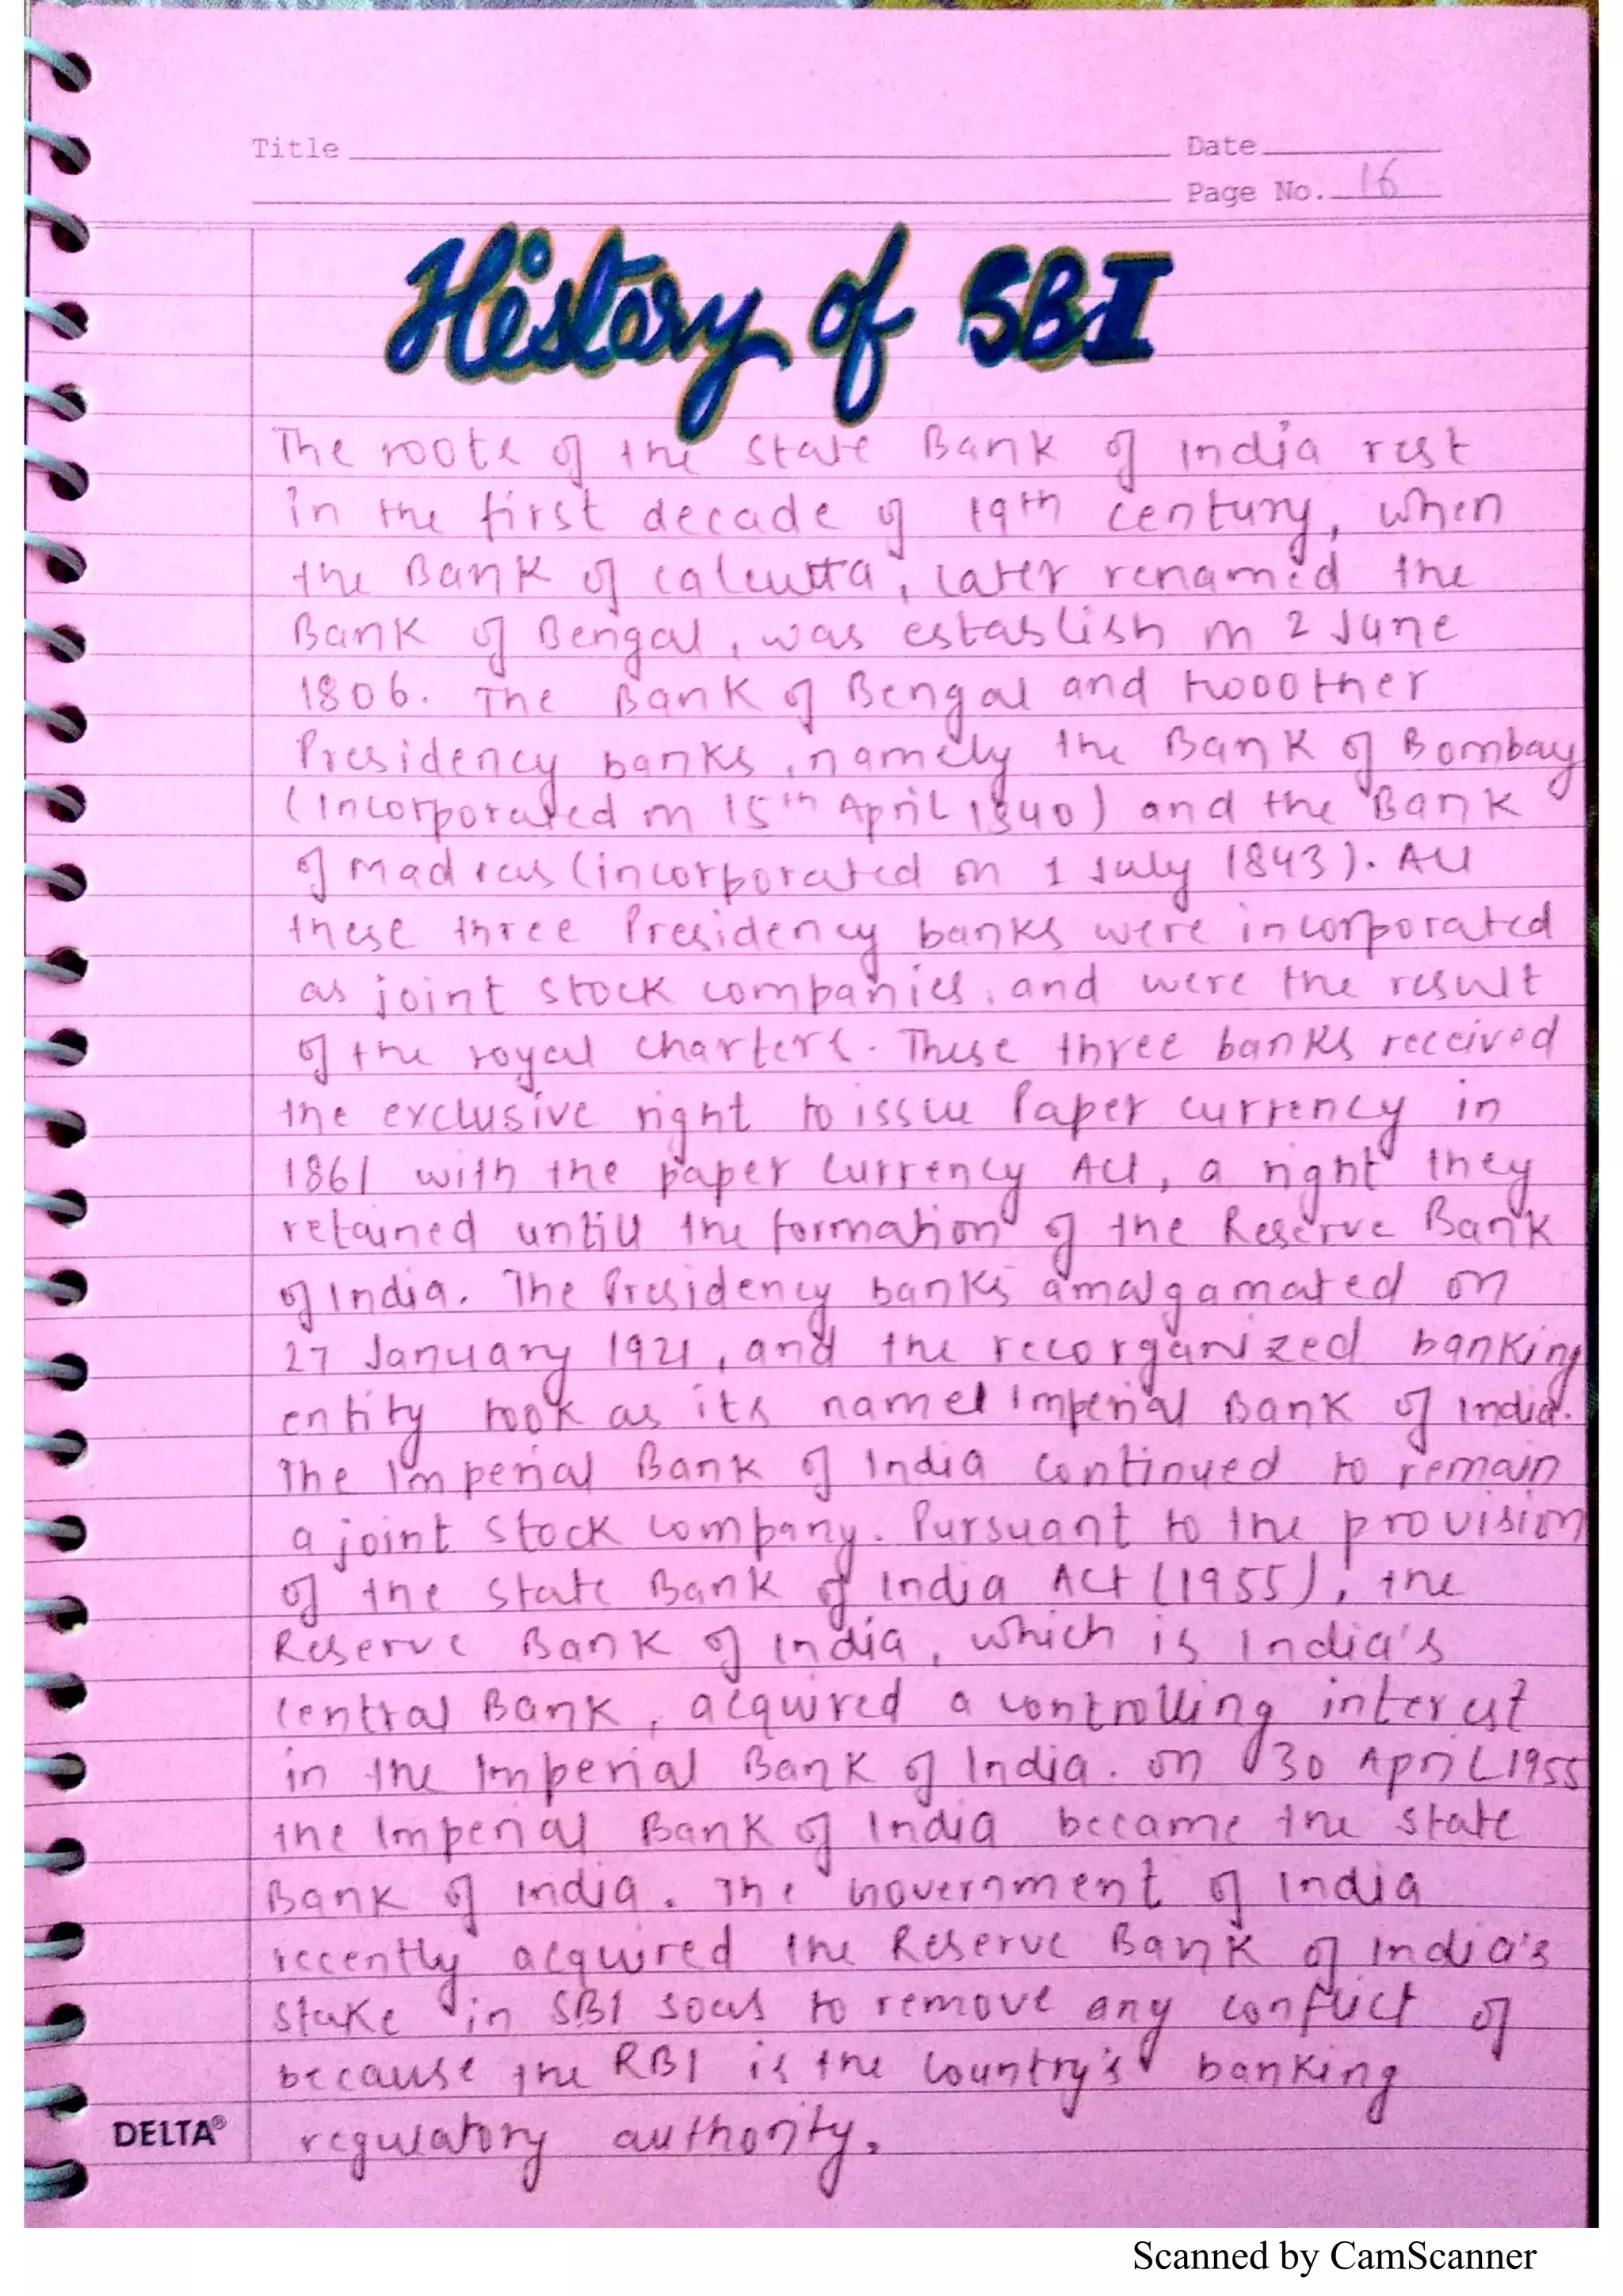 Title
Date
Page No. 16
History of SBI
The roots of the State Bank of India rest
in the first decade of 19th century, when
the Bank of calcutta, later renamed the
Bank of Bengal, was establish on 2 June
1806. The Bank of Bengal and twoother
Presidency banks, namely the Bank of Bombay
(Incorporated on 15th April 1840) and the Bank
of Madras (incorporated on 1 July 1843). All
these three Presidency banks were incorporated
as joint stock companies, and were the result
of the royal charters. These three banks received
the exclusive right to issue Paper currency in
1861 with the paper Currency Act, a right they
retained untill the formation of the Reserve Bank
of India. The Presidency banks amalgamated on
27 January 1921, and the recorganized banking
entity took as its named Imperial Bank of India.
The Imperial Bank of India Continued to remain
a joint stock company. Pursuant to the provision
of the State Bank of India Act (1955), the
Reserve Bank of India, which is India's
Central Bank, acquired a controlling interest
in the Imperial Bank of India. on 30 April 1955
the Imperial Bank of India became the state
Bank of India. The Government of India
recently acquired the Reserve Bank of India's
stake in SBI soas to remove any conflict of
because the RBI is the Country's banking
regulatory authority.
DELTA®
Scanned by CamScanner